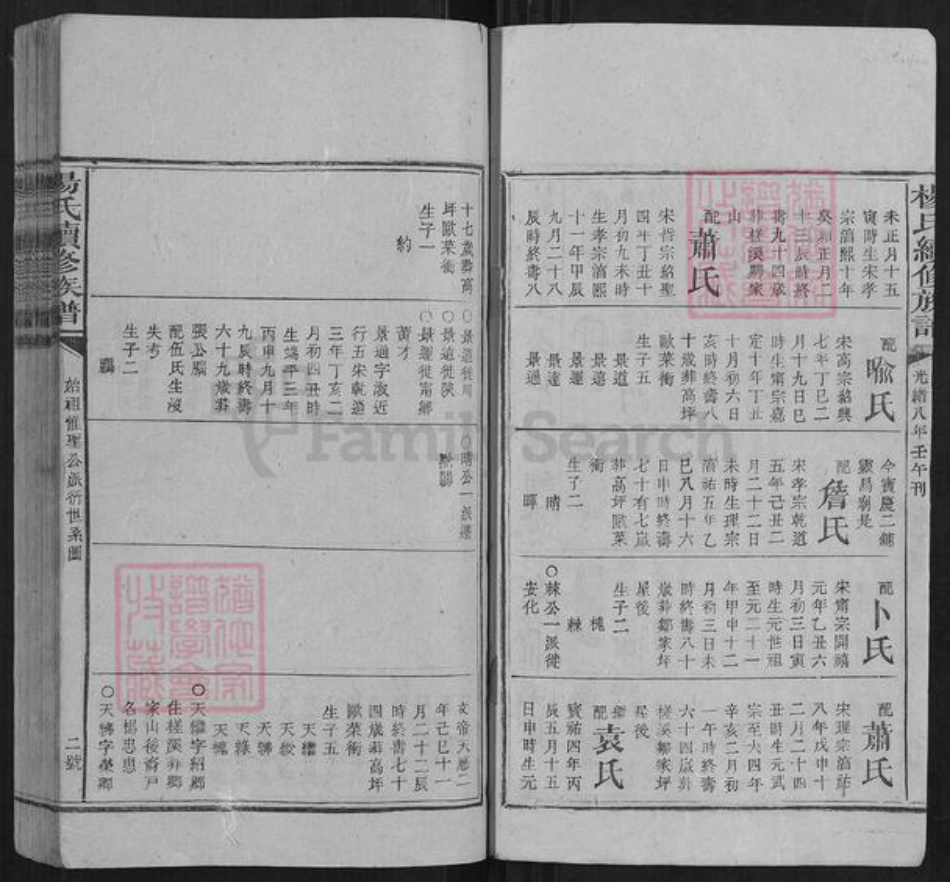 楊氏續修族譜
光緒八年壬午刊
未正月十五
寅時生宋孝
宗淳熙十年
癸卯正月二
十三辰時終
壽九十四歲
葬槎溪鄔家
山
配蕭氏
宋哲宗紹聖
四年丁丑十
月初九未時
生孝宗淳熙
十一年甲辰
九月二十八
辰時終壽八
配喻氏
宋高宗紹興
七年丁巳二
月十九日巳
時生甯宗嘉
定十年丁丑
十月初六日
亥時終壽八
十歲葬高坪
歐萊衝
生子五
景道
景遠
景運
景達
景過
今寶慶二鋪
靈昜廟是
配詹氏
宋孝宗乾道
五年己丑二
月二十二日
未時生理宗
淳祐五年乙
巳八月十六
日申時終壽
七十有七歲
葬高坪歐萊
衝
生子二
晴
暉
配卜氏
宋甯宗開禧
元年乙丑六
月初三日寅
時生元世祖
至元二十一
年甲申十二
月初三日未
時終壽八十
歲葬鄒家坪
屋後
生子二
槐
棘
○棘公一派徙
安化
配蕭氏
宋理宗淳祐
八年戊申十
二月二十四
丑時生元武
宗至大四年
辛亥二月初
一午時終壽
六十四歲葬
槎溪鄒家坪
屋後
繼配袁氏
寶祐四年丙
辰五月十五
日申時生元
十七歲葬高
坪歐萊衝
生子一
約
○景道徙川
○景遠徙陝
○景運徙甯鄉
黄才
景過字淑近
行五宋乾道
三年丁亥二
月初四丑時
生端平三年
丙申九月十
九辰時終壽
六十九歲葬
張公腦
配伍氏生歿
失考
生子二
○晴公一派遷
文帝天曆二
年己巳十一
月二十二辰
時終壽七十
四歲葬高坪
歐萊衝
生子五
天繼
天紱
天驊
天祿
天槐
○天繼字紹卿
住槎溪井鄉
家山後裔戸
名楊忠惠
○天驊字榮卿
楊氏續修族譜
始祖惟聖公派衍世系圖
二號
FamilySearch